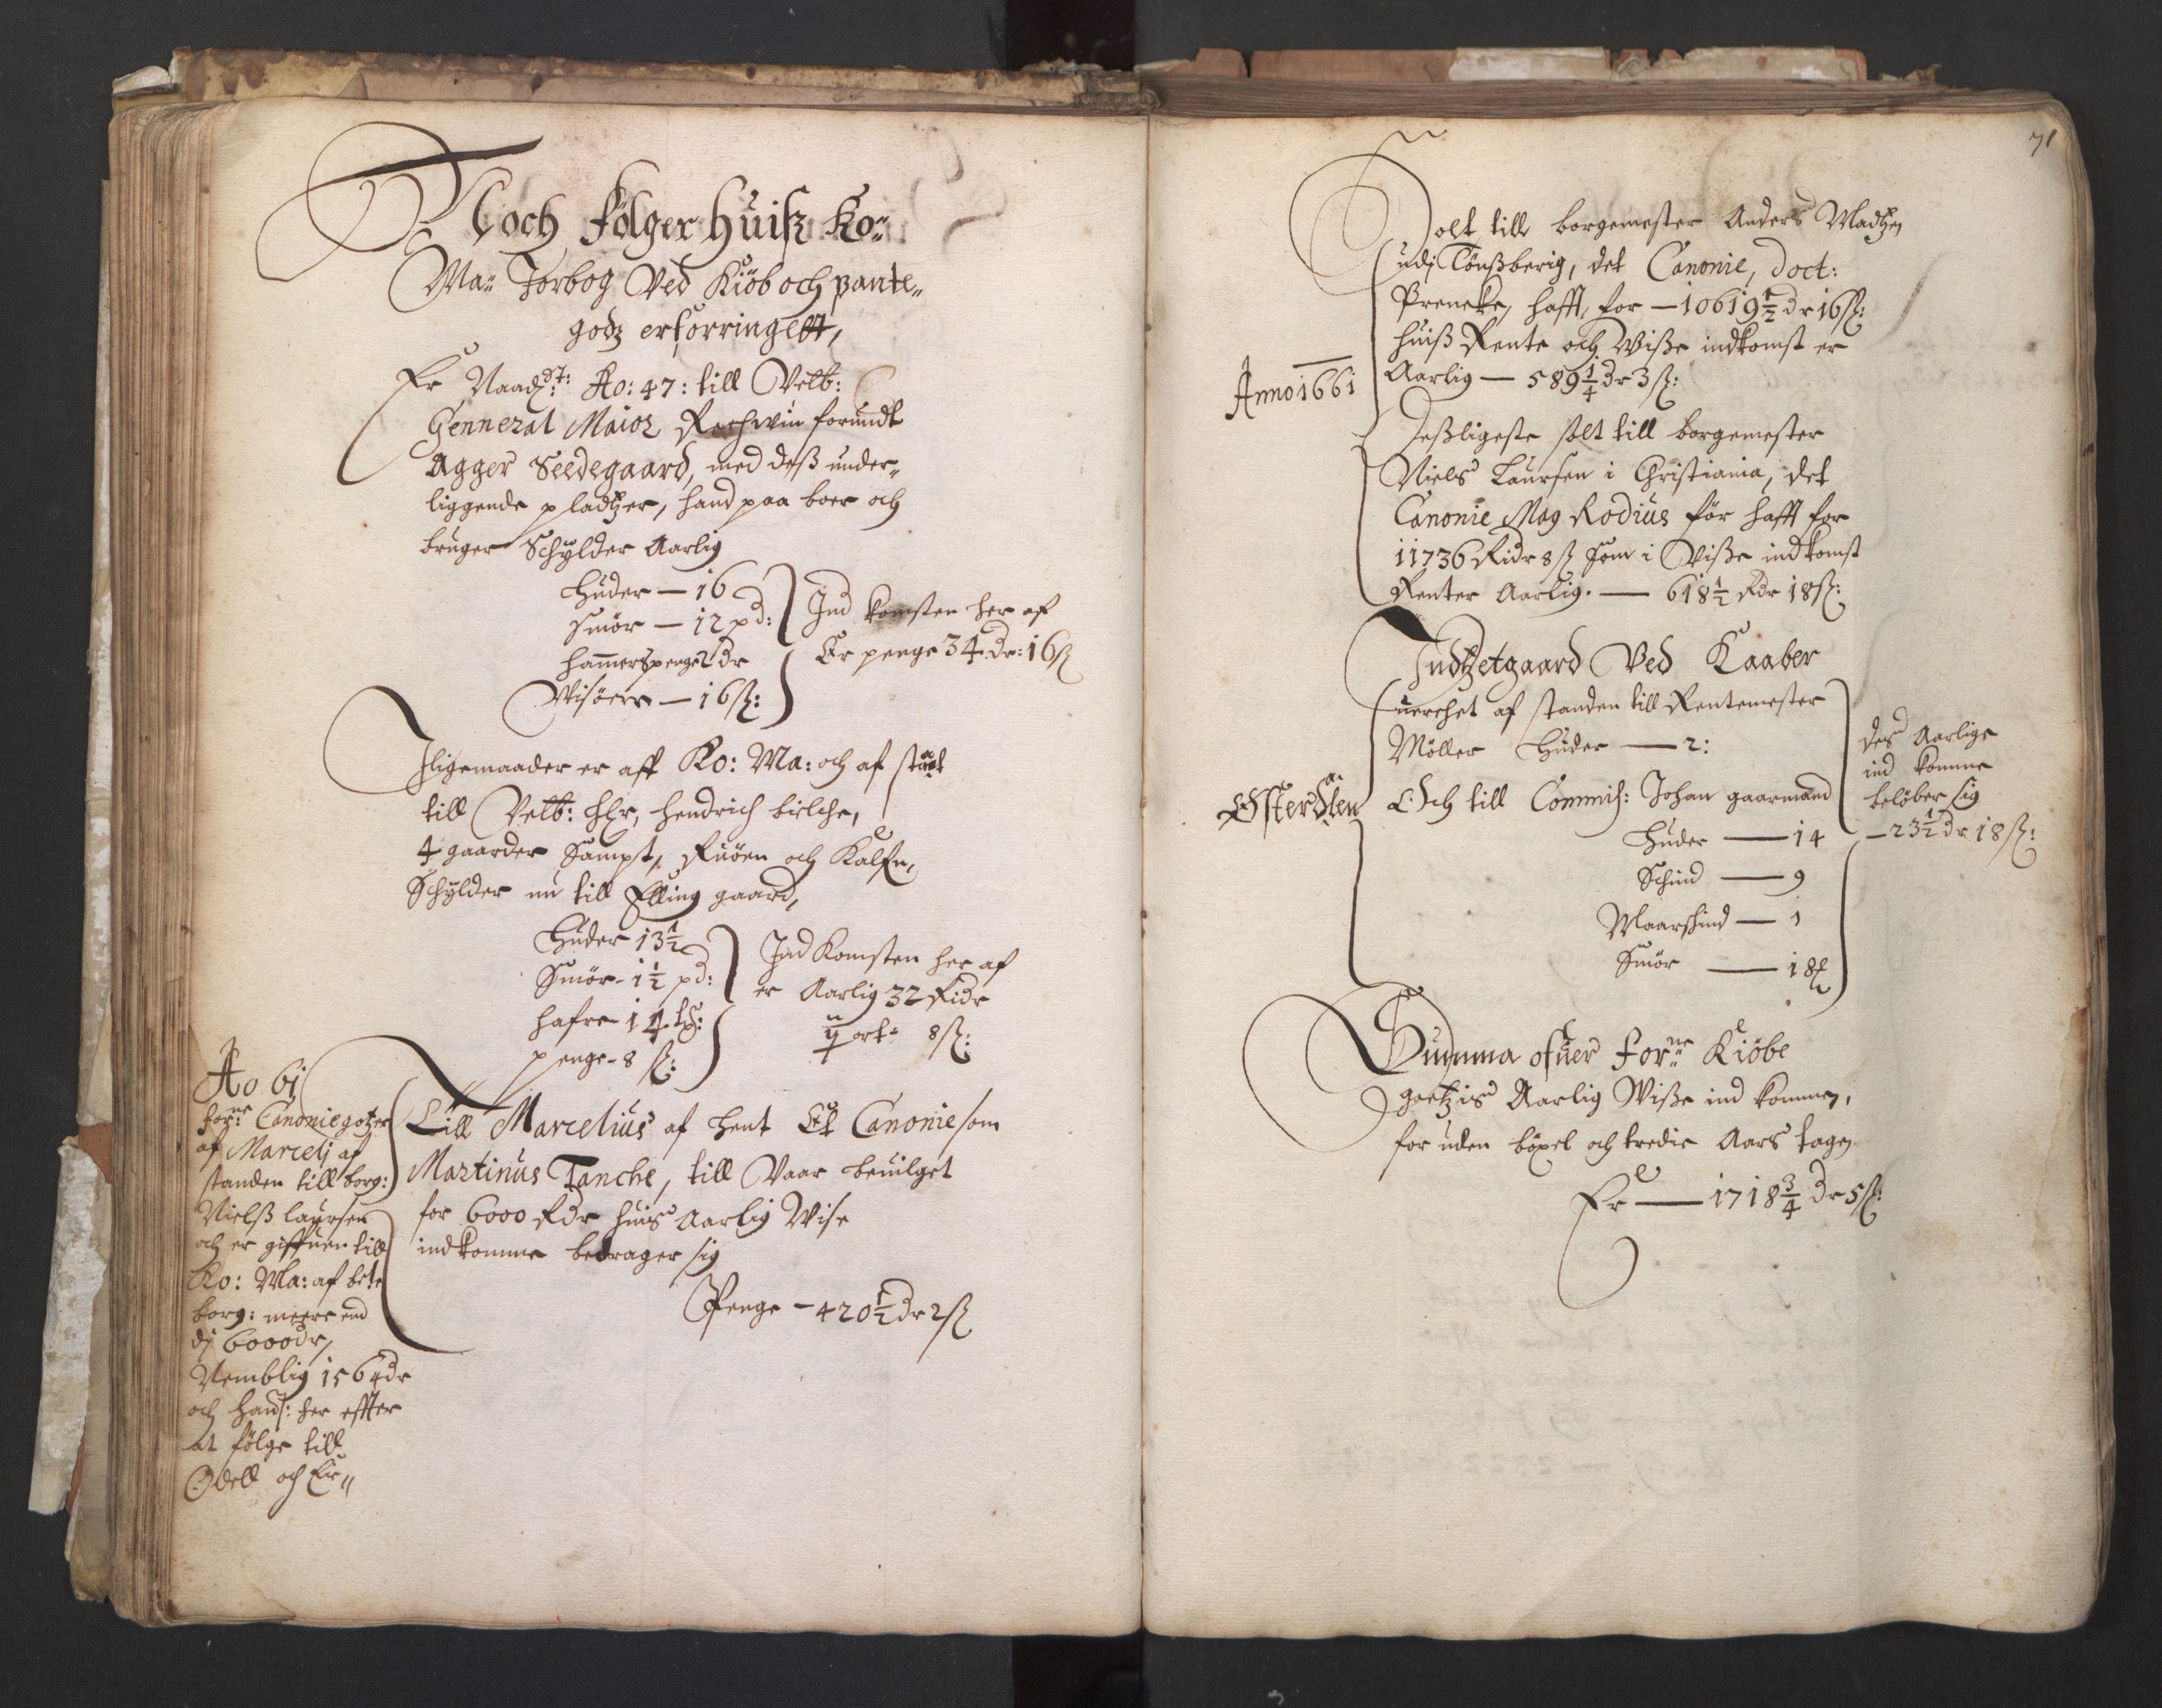 Noch følger huisz Ko:
Ma: Jorbog Ved Kiöb och pante-
godz er forringelt,
Er Naadst: Ao: 47: till Velb:
Genneral Maior Rechwin forundt
Agger Seedegaard, med desz under-
liggende pladtzer, hand paa boer och
bruger Schÿlder Aarlig
Huder — 16
Smör — 12 pd:
hammerspenge 2 dr
Visöer — 16 ß:
Ind komsten her af
Er penge 34 dr: 16 ß
Jligemaader er aff Ko: Ma: och af staat
till Velb: Hr, hendrich bielche,
4 gaarder Sampt, Ruöen och Kalfn,
Schÿlder nu till Elling gaard,
Huder 13 1/2
Smör - 1 1/2 pd:
hafre 14 tß:
penge - 8 ß:
Ind Komsten her af
er Aarlig 32 Ridr
ort 8 ß:
Ao 61
forne Canonie gotzer
af Marcelj af
standen till borg:
Nielsz laursen
och er giffuen till
Ko: Ma: af bete
borg: meere end
dj 6000 dr,
Nemblig 1564 dr
och hans: her effter
at følge till
Odell och Eie
Till Marcelius af hent Et Canonie som
Martinus Tanche, till Vaar beuilget
for 6000 Rdr huis Aarlig Vise
indkomme bedrager sig
Penge - 420 1/2 dr 2 ß
71
Solt till borgemester Anders Madtzen
udj Tönszberig, det Canonie, doct:
Preneke, hafft, for — 10619 1/2 dr 16 ß:
huisz Rente och Wisze indkomst er
Aarlig — 589 1/4 dr 3 ß:
Anno 1661
Deszligeste solt till borgemester
Niels Laursen i Christiania, det
Canonie Mag Rodius för hafft for
11736 Ridr 8 ß som i Visze indkomst
Renter Aarlig. — 618 1/2 Rdr 18 ß:
Indtzetgaard Ved Kaaber
uerchet af standen till Rentemester
Möller Huder — 2:
Österdalen
Och till Commis: Johan gaarmand
Huder — 14
Schind — 9
Maarskind — 1
Smör — 18
des Aarlige
ind komme
belöber sig
— 23 1/2 dr 18 ß:
Summa ofuer forne Kiöbe
goetzis Aarlig Wisze ind kommen,
for uden böxel och tredie Aars tagen
Er — 1718 3/4 dr 5 ß: